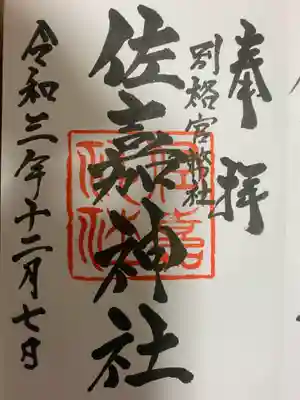 奉拝
別格官幣社
佐嘉神社
令和三年十二月七日